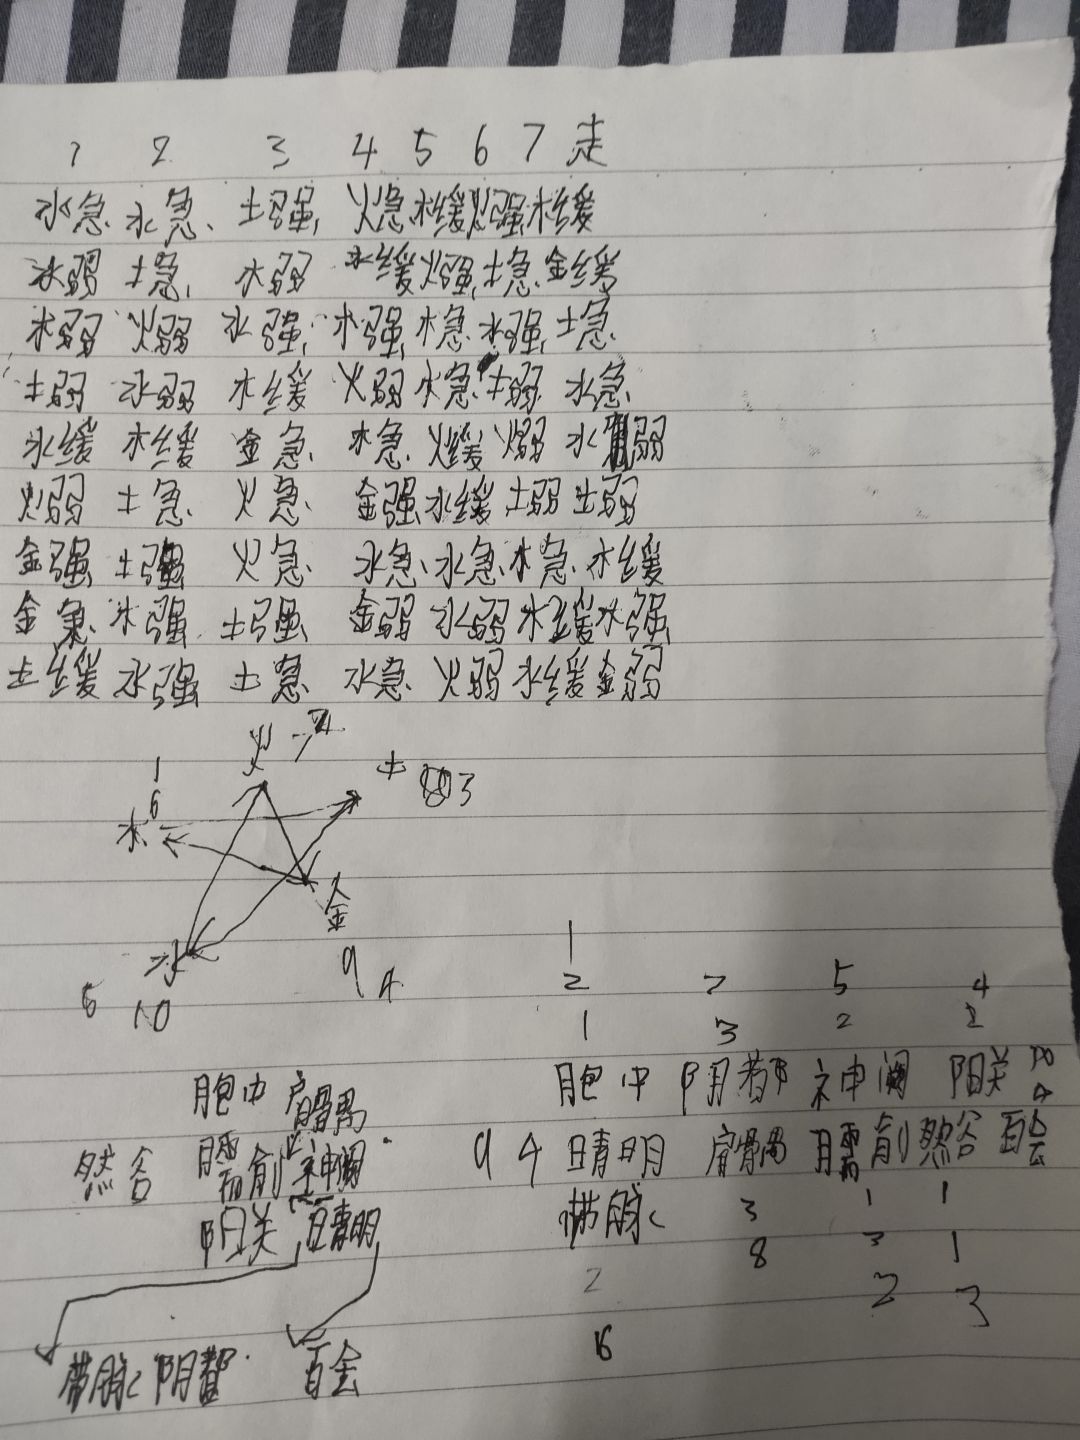 1 2 3 4 5 6 7 走
水急 水急 土强 火急 木缓 火强 木缓
水弱 土急 水弱 木缓 火强 土急 金缓
木弱 火弱 水强 木强 木急 水强 土急
土弱 水弱 木缓 火弱 水急 土弱 水急
水缓 木缓 金急 木急 火缓 火弱 水弱
火弱 土急 火急 金强 水缓 土弱 土弱
金强 土强 火急 水急 水急 木急 木缓
金急 水强 土强 金弱 水弱 木缓 水强
土缓 水强 土急 水急 火弱 水缓 金弱
火 7
1 土 3
6
木
金
水 9 4 1
5 10 2 7 5 4
1 3 2 2
胞中 肩髃 胞中 阴都 神阙 阳关
然谷 臑俞 神阙 9 4 睛明 肩髃 臑俞 然谷 百会
阳关 睛明 带脉 3 1 1
8 3 1
2 2 3
带脉 阴都 百会 6